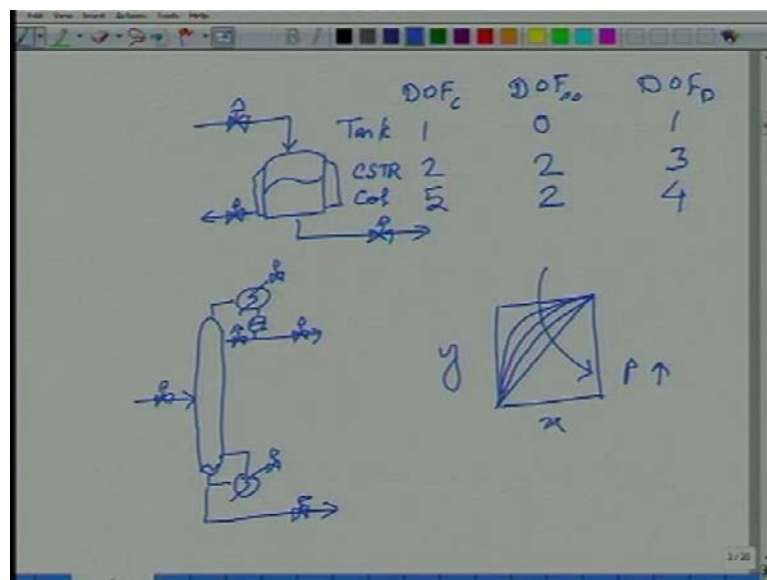 Edit View Insert Actions Tools Help
DOF_c DOF_ss DOF_D
Tank 1 0 1
CSTR 2 2 3
Col 5 2 4
y
P ↑
x